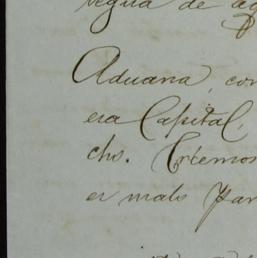 de
Aduana, con
era Capital,
cho. Creemos
er malo par